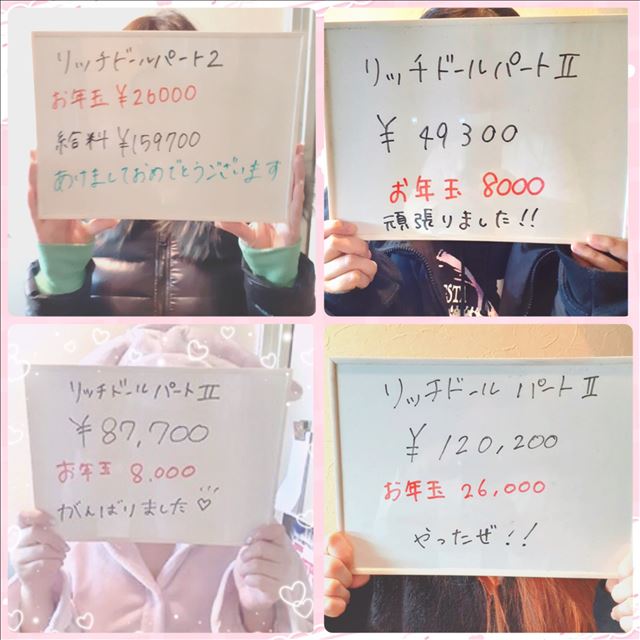 リッチドールパート2
お年玉 ¥26000
給料 ¥159700
あけましておめでとうございます
リッチドールパートⅡ
¥ 49300
お年玉 8000
頑張りました!!
リッチドールパートⅡ
¥87,700
お年玉 8,000
がんばりました♡
リッチドール パートⅡ
¥120,200
お年玉 26,000
やったぜ!!